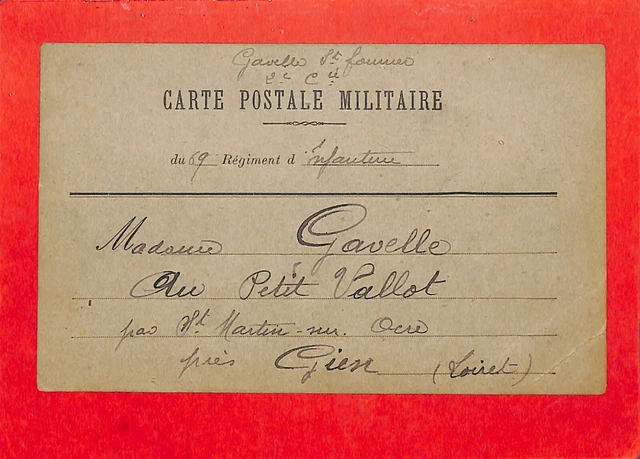 Gavelle Sgt fourrier
2e Cie
CARTE POSTALE MILITAIRE
du 69 Régiment d'Infanterie
Madame Gavelle
Au Petit Vallot
par St Martin-sur-Ocre
près Gien (Loiret)